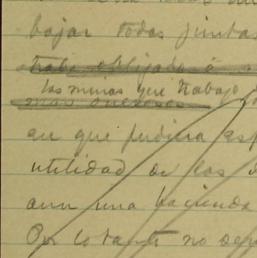 bajar todas juntas
trabe obligados á
las minas que trabajo
mas
en que pudiera esp
utilidad de las
aun una hacienda
Por lo tanto no de